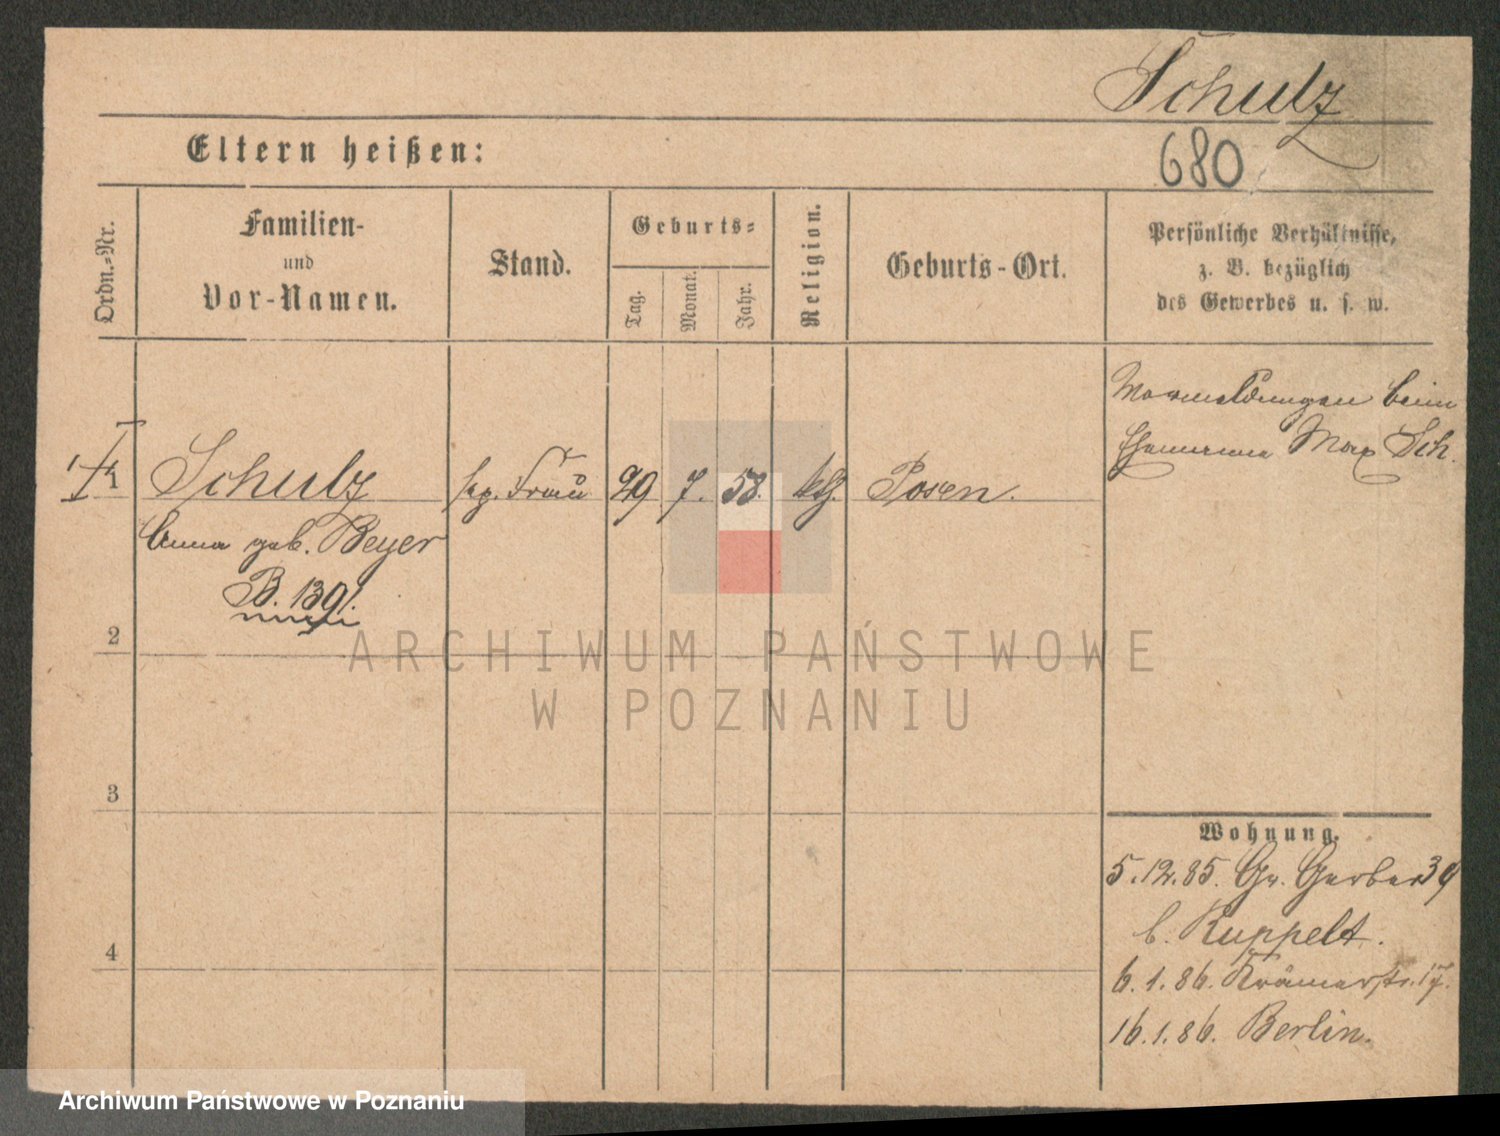 Schulz
680
Eltern heißen:
Ordn.=Nr.
Familien-
und
Vor-Namen.
Stand.
Geburts=
Tag.
Monat.
Jahr.
Religion.
Geburts-Ort.
Persönliche Verhältnisse,
z. B. bezüglich
des Gewerbes u. s. w.
Vormeldungen beim
Ehemanne Max Sch.
1 Schulz sep. Frau 29 7. 58. kth. Posen.
Anna geb. Beyer
B. 1391.
2
3
4
Wohnung.
5.12.85. Gr. Gerber 39
b. Ruppelt.
6.1.86. Krämerstr. 17.
16.1.86. Berlin.
ARCHIWUM PAŃSTWOWE
W POZNANIU
Archiwum Państwowe w Poznaniu